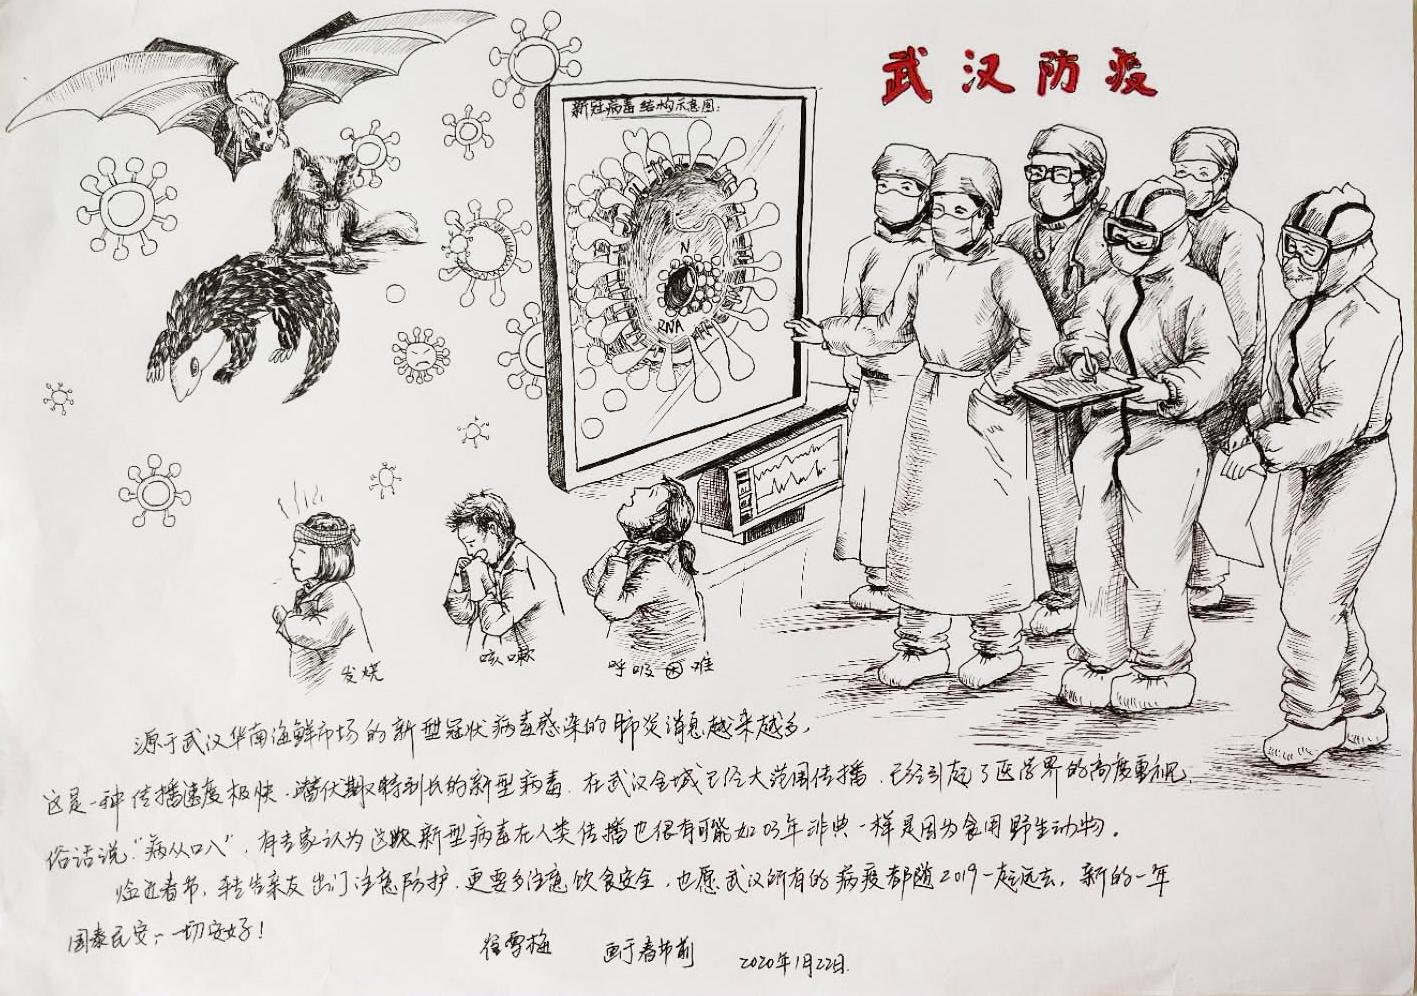 武汉防疫
新冠病毒结构示意图:
N
RNA
发烧
咳嗽
呼吸困难
源于武汉华南海鲜市场的新型冠状病毒感染的肺炎消息越来越多,
这是一种传播速度极快、潜伏期又特别长的新型病毒.在武汉全城已经大范围传播.已经引起了医学界的高度重视.
俗话说:"病从口入",有专家认为这起新型病毒在人类传播也很有可能如03年非典一样是因为食用野生动物.
临近春节,转告亲友出门注意防护.更要多注意饮食安全,也愿武汉所有的病疫都随2019一起远去,新的一年
国泰民安,一切安好!
徐雪梅 画于春节前 2020年1月22日.